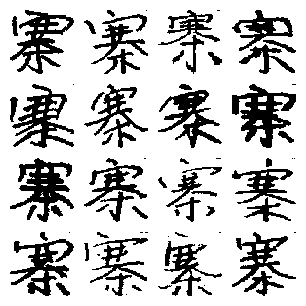 寨寨寨寨
寨寨寨寨
寨寨寨寨
寨寨寨寨